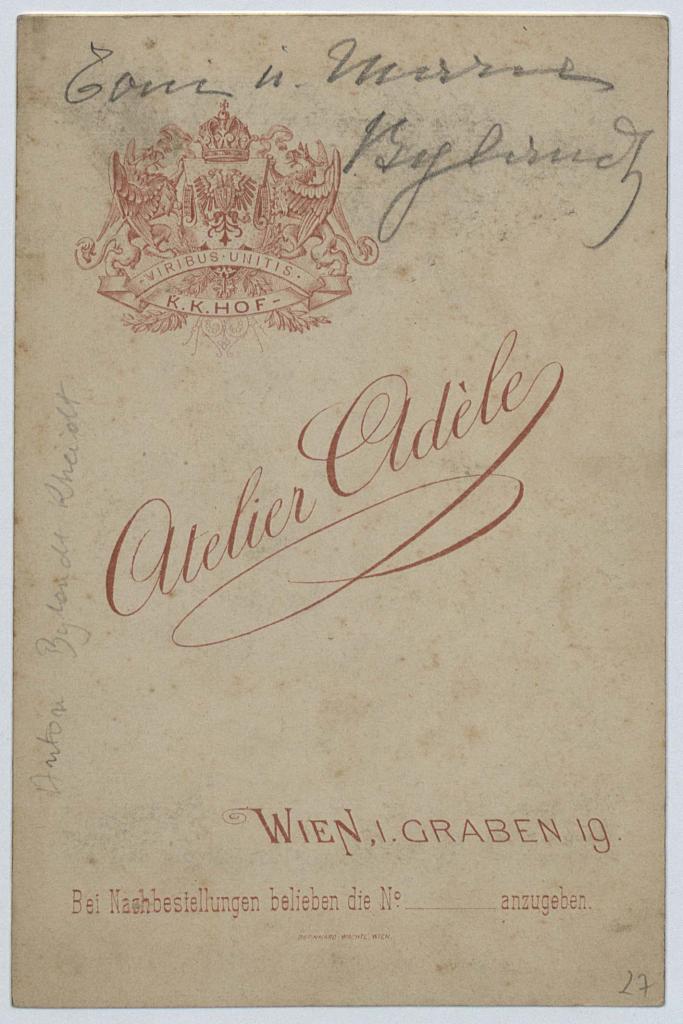 Toni u. Marie
Bylandt
VIRIBUS·UNITIS·
K.K.HOF-
Atelier Adèle
Anton Bylandt Rheidt
WIEN, I. GRABEN 19.
Bei Nachbestellungen belieben die Nº ________ anzugeben.
BERNHARD WACHTL, WIEN.
27